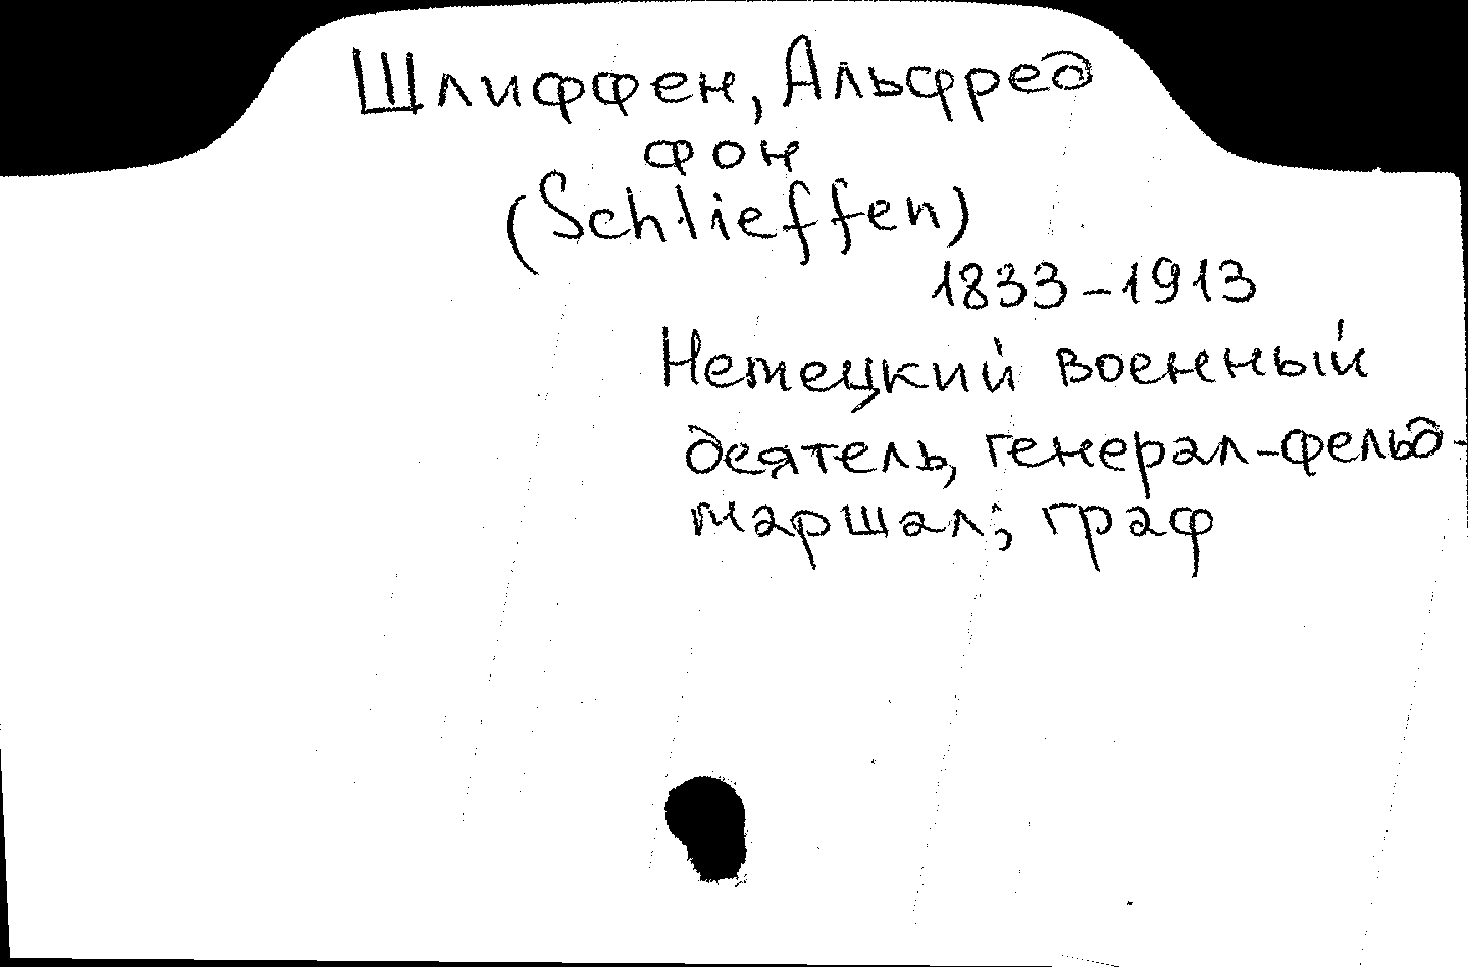 Шлиффен, Альфред
фон
(Schlieffen)
1833-1913
Немецкий военный
деятель, генерал-фельд-
маршал; граф